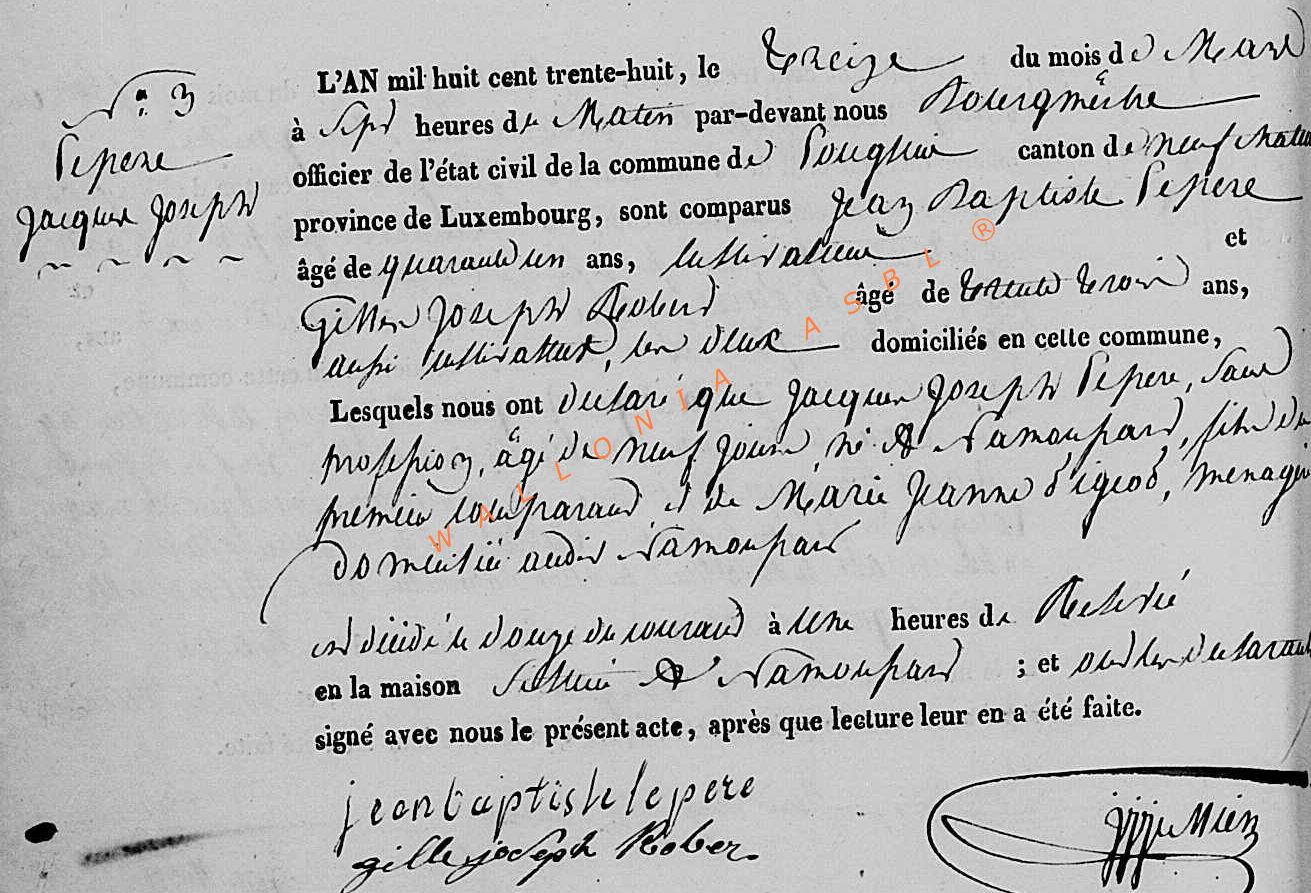 n° 3
Lepere
Jacques Joseph
L'AN mil huit cent trente-huit, le treize du mois de Mars
à sept heures du Matin par-devant nous Bourgmêstre
officier de l'état civil de la commune de Longlier canton de neufchatea
province de Luxembourg, sont comparus Jean Baptiste Lepere
âgé de quarante un ans, cultivateur et
Gilles Joseph Robert âgé de trente trois ans,
aussi cultivateur, les deux domiciliés en cette commune,
Lesquels nous ont declaré que Jacques Joseph Lepere, sans
profession, âgé de neuf jours, né à Namoussart, fils du
premier comparant et de Marie Jeanne menagère
domiciliée audit Namoussart
est décédé le douze du courant à une heures de Relevée
en la maison située à Namoussart ; et ont les declarants
signé avec nous le présent acte, après que lecture leur en a été faite.
jean baptiste lepere
gille joseph Rober.
WALLONIA ASBL ®